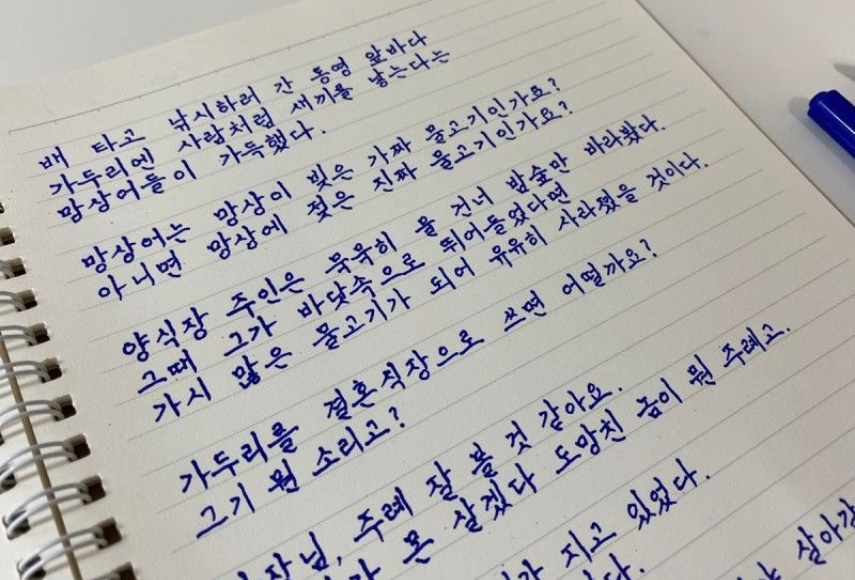 배 타고 낚시하러 간 통영 앞바다
가두리엔 사람처럼 새끼를 낳는다는
망상어들이 가득했다.
망상어는 망상이 빚은 가짜 물고기인가요?
아니면 망상에 젖은 진짜 물고기인가요?
양식장 주인은 묵묵히 물 건너 밤숲만 바라봤다.
그때 그가 바닷속으로 뛰어들었다면
가시 많은 물고기가 되어 유유히 사라졌을 것이다.
가두리를 결혼식장으로 쓰면 어떨까요?
그기 뭔 소리고?
주례 잘 볼 것 같아요.
못 살겠다 도망친 놈이 뭔 주례고.
지고 있었다.